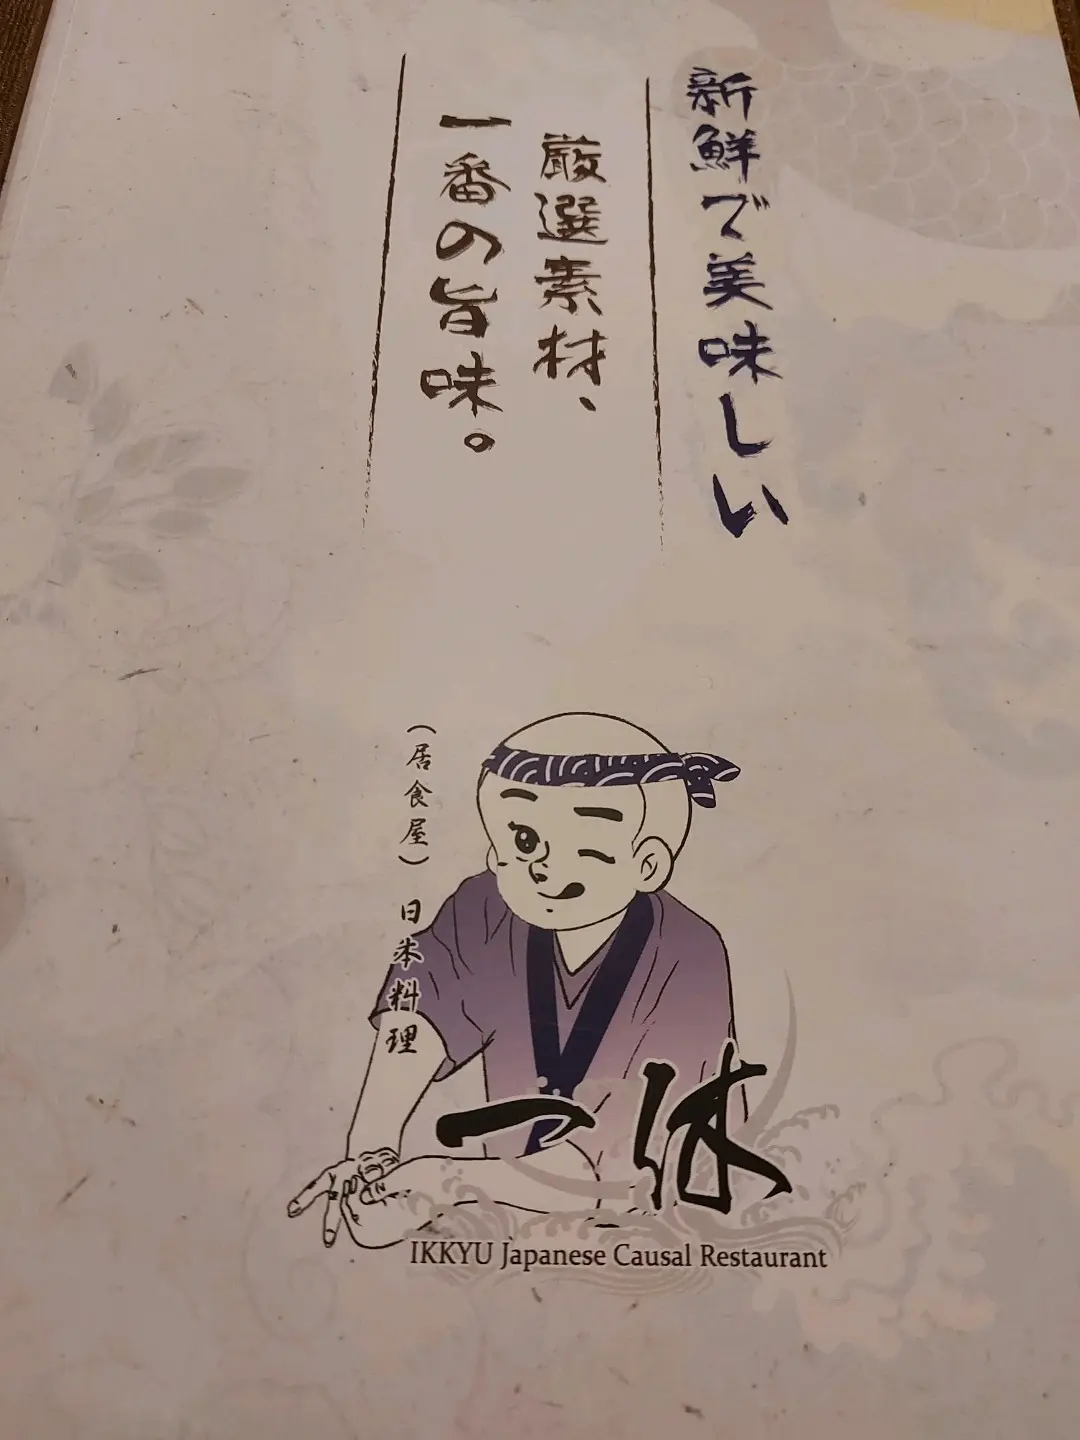 新鮮で美味しい
厳選素材、
一番の旨味。
（居食屋）日本料理
一休
IKKYU Japanese Causal Restaurant